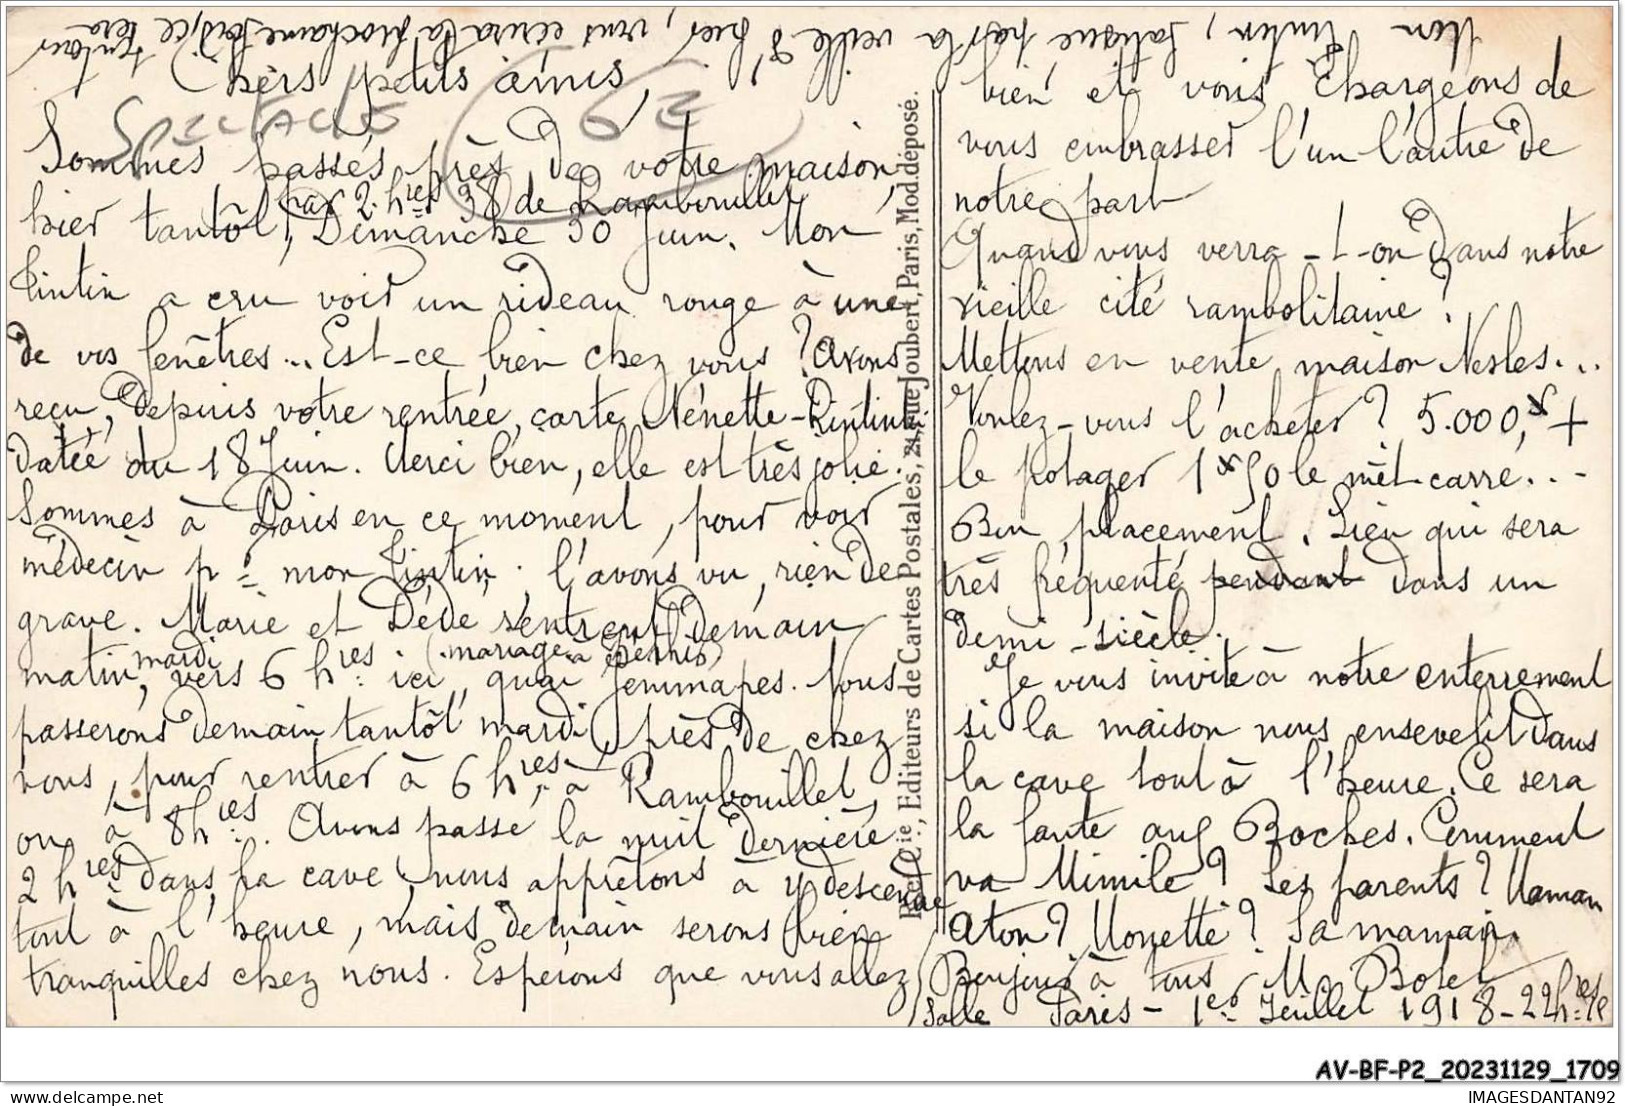 Mon Tintin, fatigué par la veille d'hier, vous écrira la prochaine fois, ce sera
Chers petits amis,
SPECTACLES
62
Sommes passés près de votre maison,
hier tantôt, par 2 hres 38 de Rambouillet
Dimanche 30 Juin. Mon
Tintin a cru voir un rideau rouge à une
de vos fenêtres... Est-ce bien chez vous ? Avons
reçu, depuis votre rentrée, carte Nénette-Rintintin
datée du 18 Juin. Merci bien, elle est très jolie.
Sommes à Paris en ce moment, pour voir
médecin pr mon Tintin; l'avons vu, rien de
grave. Marie et Dédé rentrent demain
matin, mardi, vers 6 hres ici, (mariage à
quai Jemmapes. Nous
passerons demain tantôt mardi, près de chez
vous, pour rentrer à 6 hres à Rambouillet,
ou à 8 hres. Avons passé la nuit dernière
2 hres dans la cave, nous apprêtons à y descendre
tout à l'heure, mais demain serons bien
tranquilles chez nous. Espérons que vous allez
bien et vous chargeons de
vous embrasser l'un l'autre de
notre part
Quand vous verra-t-on dans notre
vieille cité rambolitaine ?
Mettons en vente maison Nesles...
Voulez-vous l'acheter ? 5.000, +
le potager 1 50 le mèt. carré...
Bon placement. Lieu qui sera
très fréquenté pendant dans un
demi-siècle.
Je vous invite à notre enterrement
si la maison nous ensevelit dans
la cave tout à l'heure. Ce sera
la faute aux Boches. Comment
va Mimile ? Ses parents ? Maman
Aton ? Monette ? Sa maman.
Bonjour à tous M. Botel
Salle Paris - 1er Juillet 1918 - 22 hres
P. et Cie., Editeurs de Cartes Postales, 21, rue Joubert, Paris, Mod. déposé.
AV-BF-P2_20231129_1709
delcampe.net
IMAGESDANTAN92